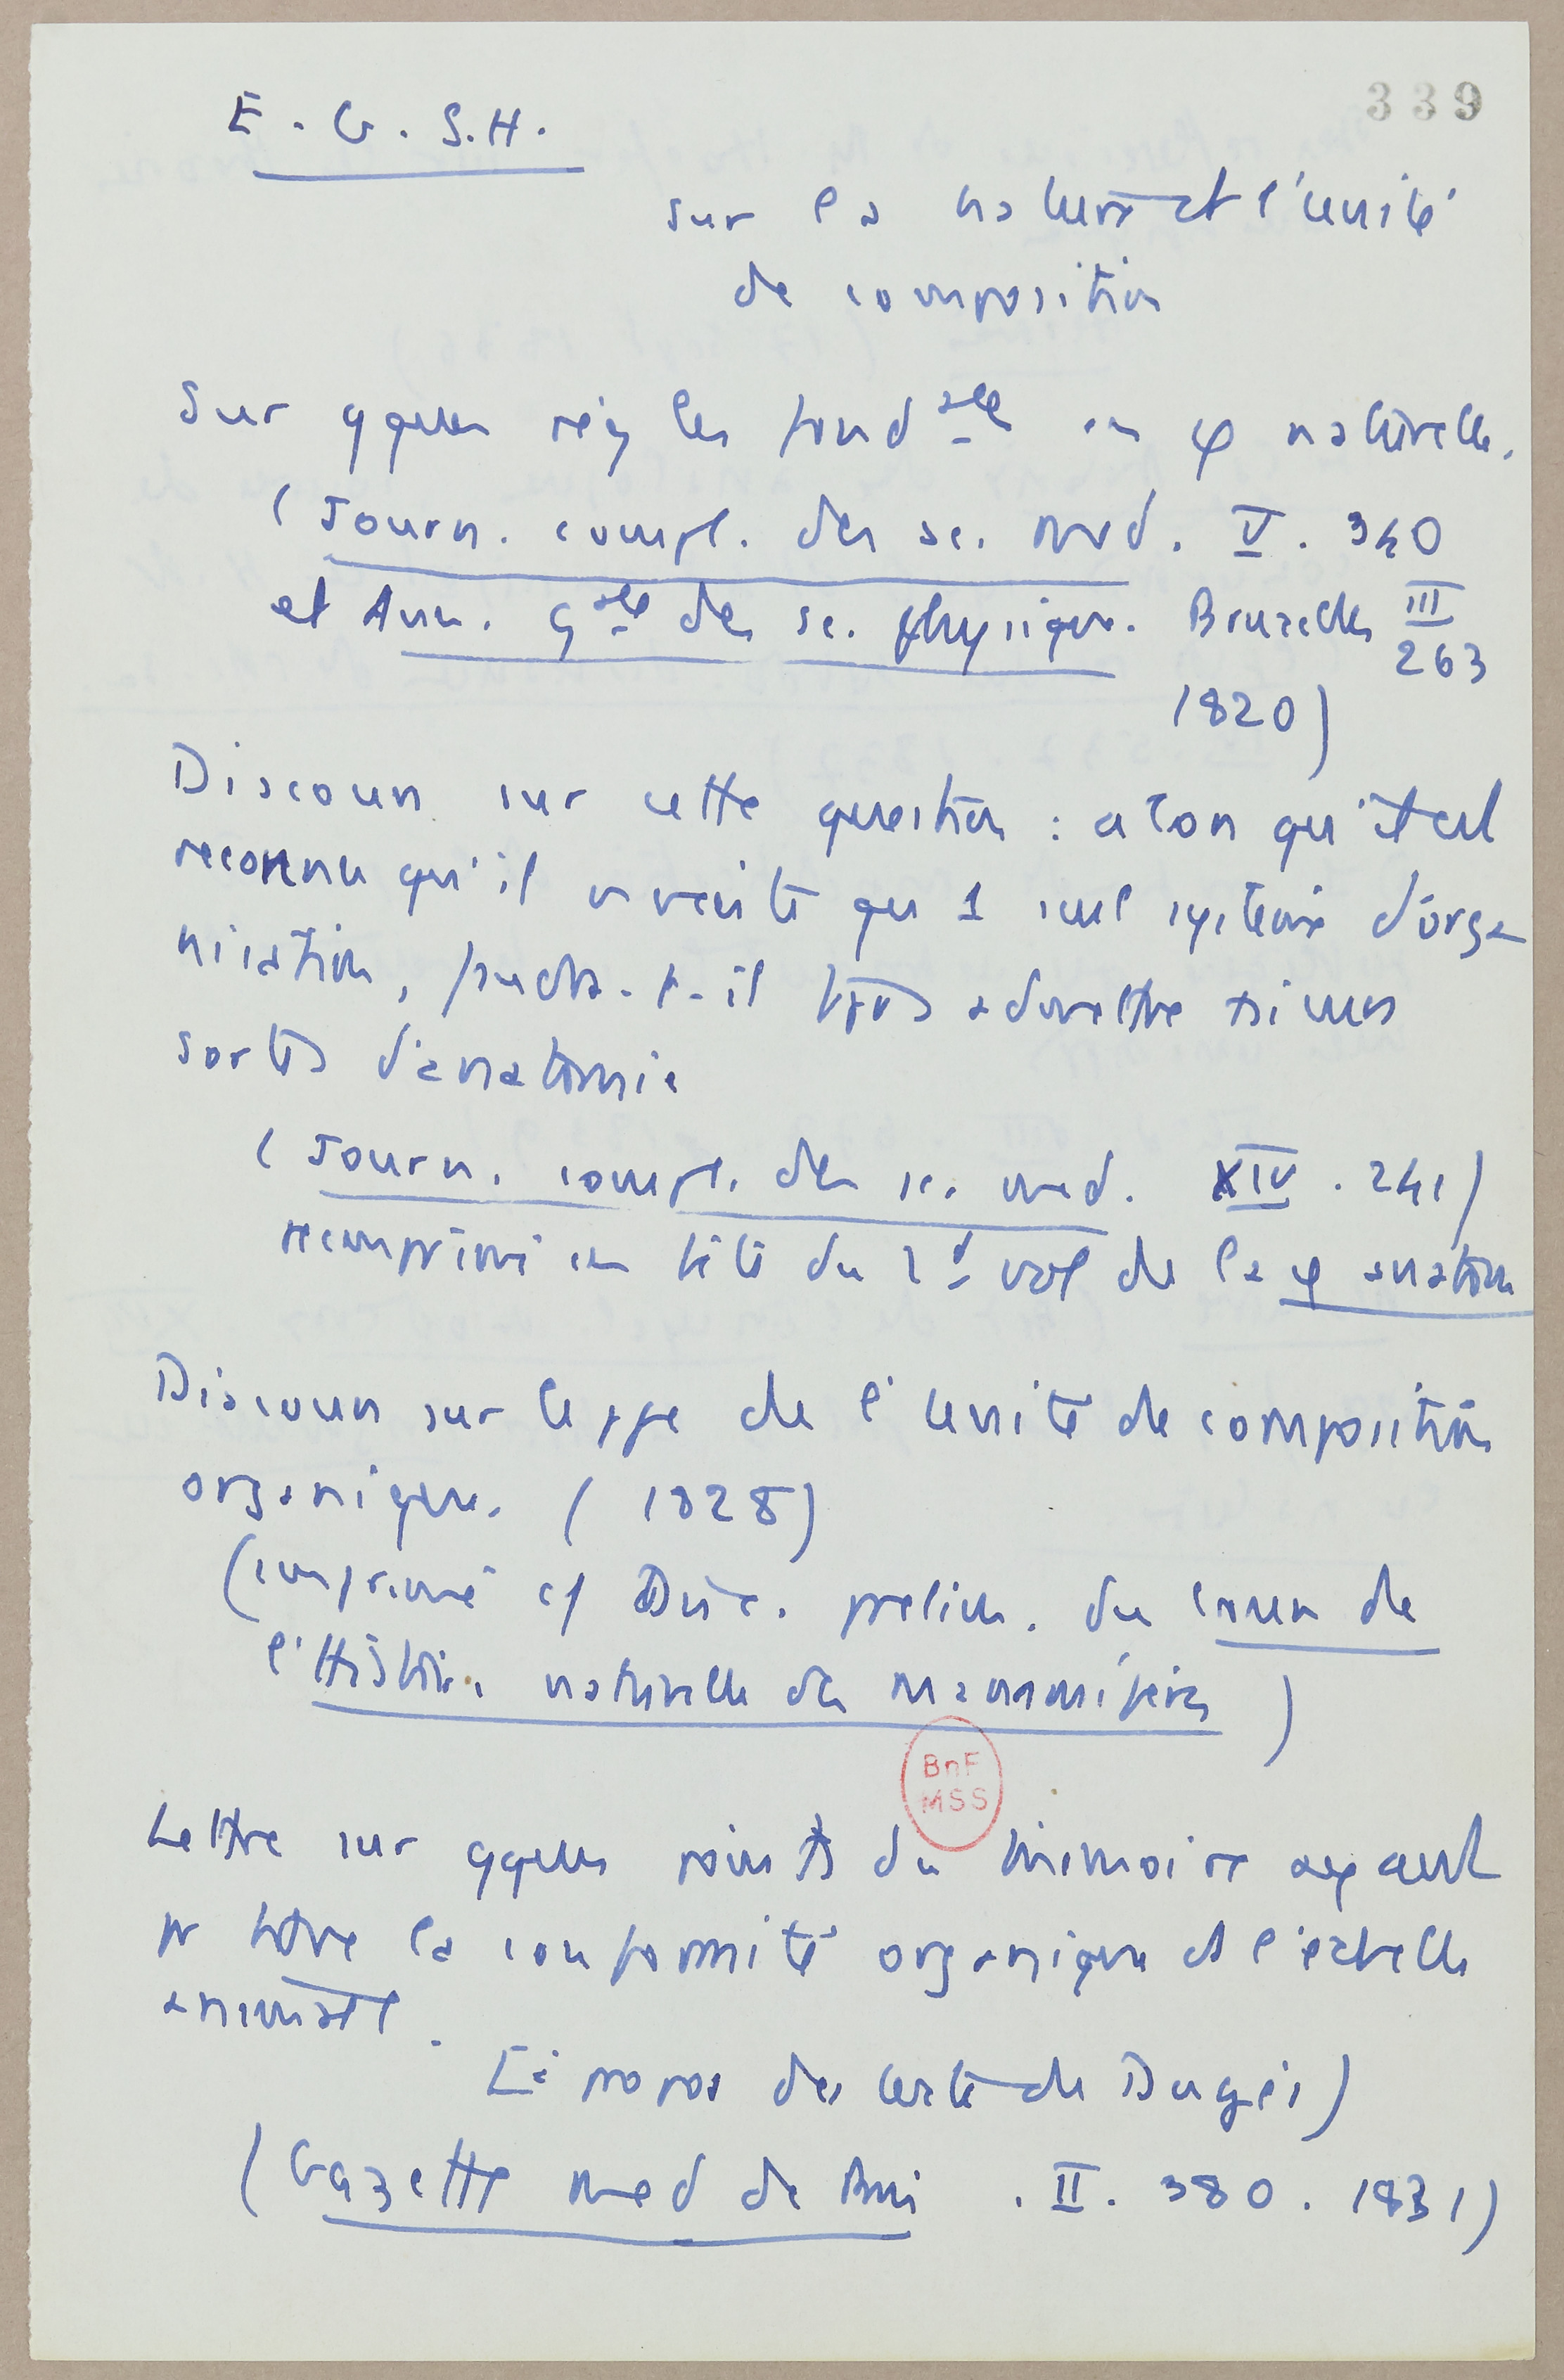 339
E. G. S.H.
sur la nature et l'unité
de composition
Sur qques règles fondales en φ naturelle.
(Journ. compl. des sc. med. V. 340
et Ann. gales des sc. physiques. Bruxelles III
263
1820)
Discours sur cette question : a t on qu'il est
reconnu qu'il n'existe qu 1 seul système d'orga
nisation, faudra-t-il tjrs admettre plusieurs
sortes d'anatomie
(Journ. compl. des sc. med. XIV. 241)
reimprimé en tête du 2d vol de la φ anatom
Discours sur le ppe de l'unité de composition
organique. (1828)
(imprimé cf Disc. prelim. du Cours de
l'Histoire naturelle des mammifères)
Lettre sur qques points du mémoire ayant
pr titre la conformité organique ds l'échelle
animale.
(à propos des texte de Dugès)
(Gazette med de Paris . II. 380. 1831)
BnF
MSS